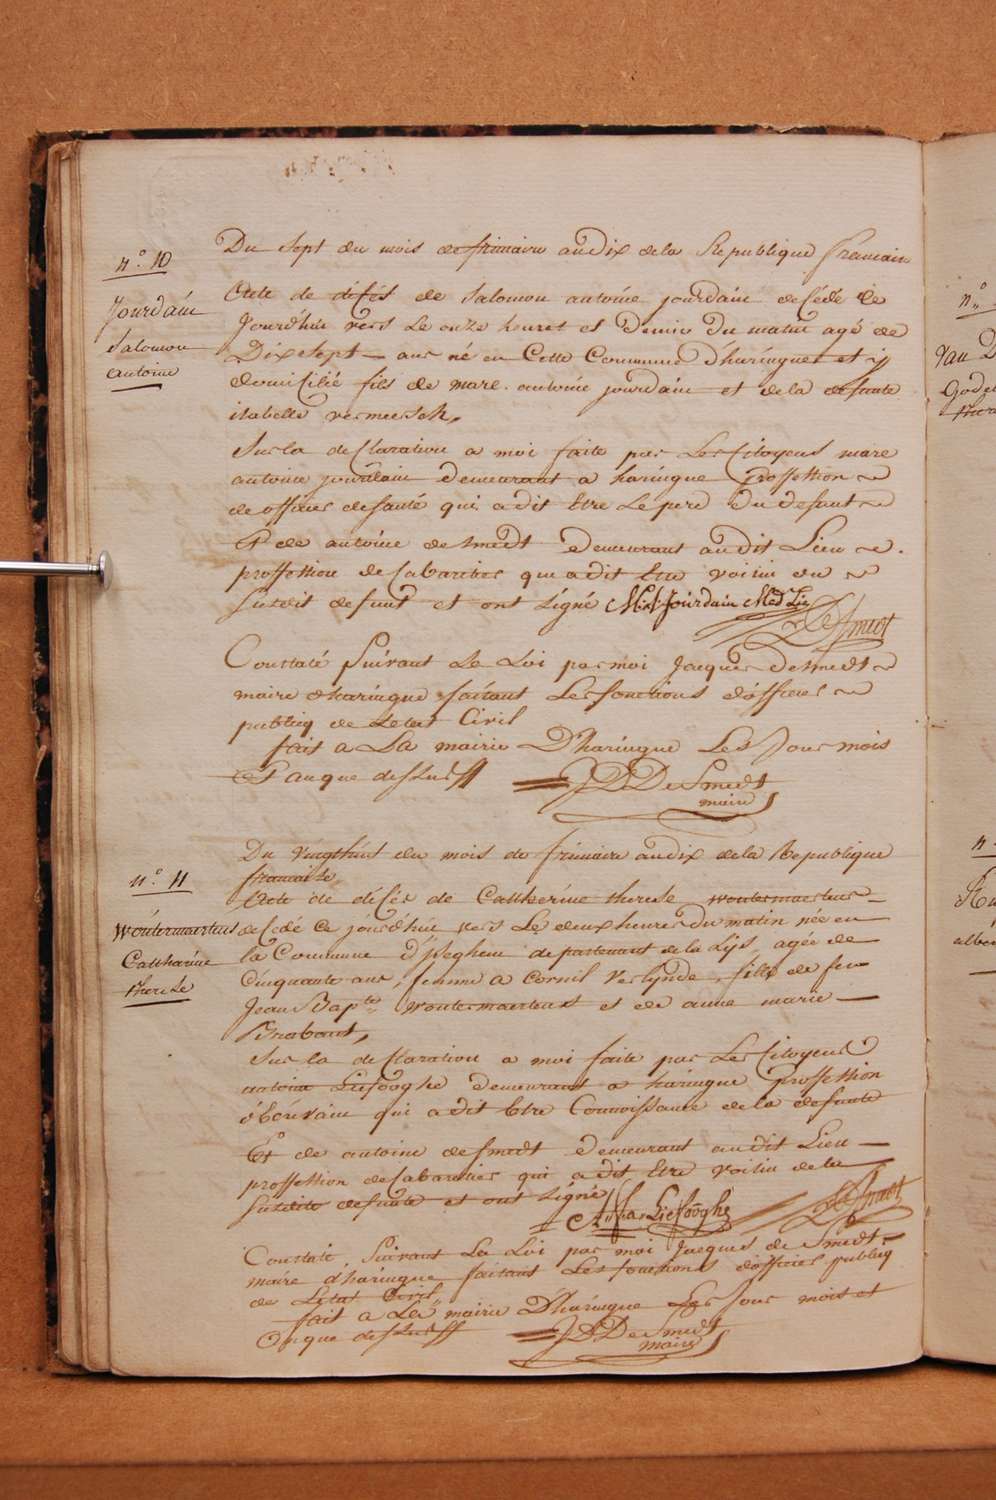 n.° 10
Jourdain
Salomon
antoine
Du Sept du mois de frimaire an dix de la Republique francaise
Acte de décés de Salomon antoine jourdain decédé le
Jourd'hui vers le onze heures et demie du matin agé de
Dixsept ans né en Cette Commune D'haringue et y
domicilié fils de marc antoine jourdain et de la defunte
isabelle vermeersch,
Sur la declaration a moi faite par les Citoyens marc
antoine jourdain demeurant a haringue proffession
de officier de santé qui a dit Etre le pere du defunt
Et de antoine de Smedt demeurant au dit Lieu
proffession de Cabaretier que a dit Etre voisin du
Susdit defunt et ont signé M: A: Jourdain Med Lic
A De Smedt
Constaté Suivant Le Loi par moi Jacques de Smedt
maire d'haringue faisant Les fonctions d'officier
publicq de L'etat Civil
fait a La mairie D'haringue Les Jour mois
Et an que dessus
J D De Smedt
maire
n.° 11
Woutermaertens
Catharine
therese
Du vingthuit du mois de frimaire an dix de la Republique
francaise,
Acte de décés de Catherine therese woutermaertens
decédé ce jourd'hui vers Le deux heures du matin née en
la Commune D'iseghem departement de la Lijs, agée de
Cinquante ans, femme a Cornil Verlynde, fille de feu
Jean Bap.te Woutermaertens et de anne marie
Brabant,
Sur la declaration a moi faite par Les Citoyens
antoine Liefooghe demeurant a haringue proffession
d'écrivain qui a dit Etre Connoissance de la defunte
Et de antoine de Smedt demeurant au dit Lieu
proffession de Cabaretier qui a dit Etre Voisin de la
Susdite defunte et ont Signé
Liefooghe
A De Smedt
Constaté, Suivant La Loi par moi Jacques de Smedt
maire d'haringue faisant Les fonctions d'officier publicq
de L'etat Civil
fait a La mairie D'haringue Les Jour mois et
an que dessus
J D De Smedt
maire
n.°
Van D